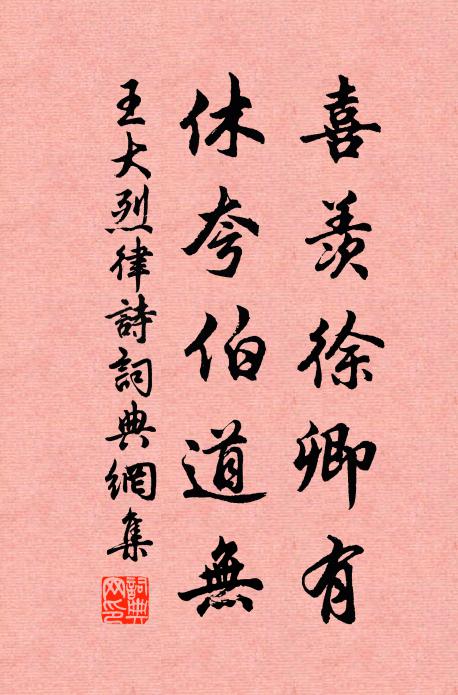 喜羨徐卿有
休夸伯道無
王大烈律詩詞典網集
詞典網印